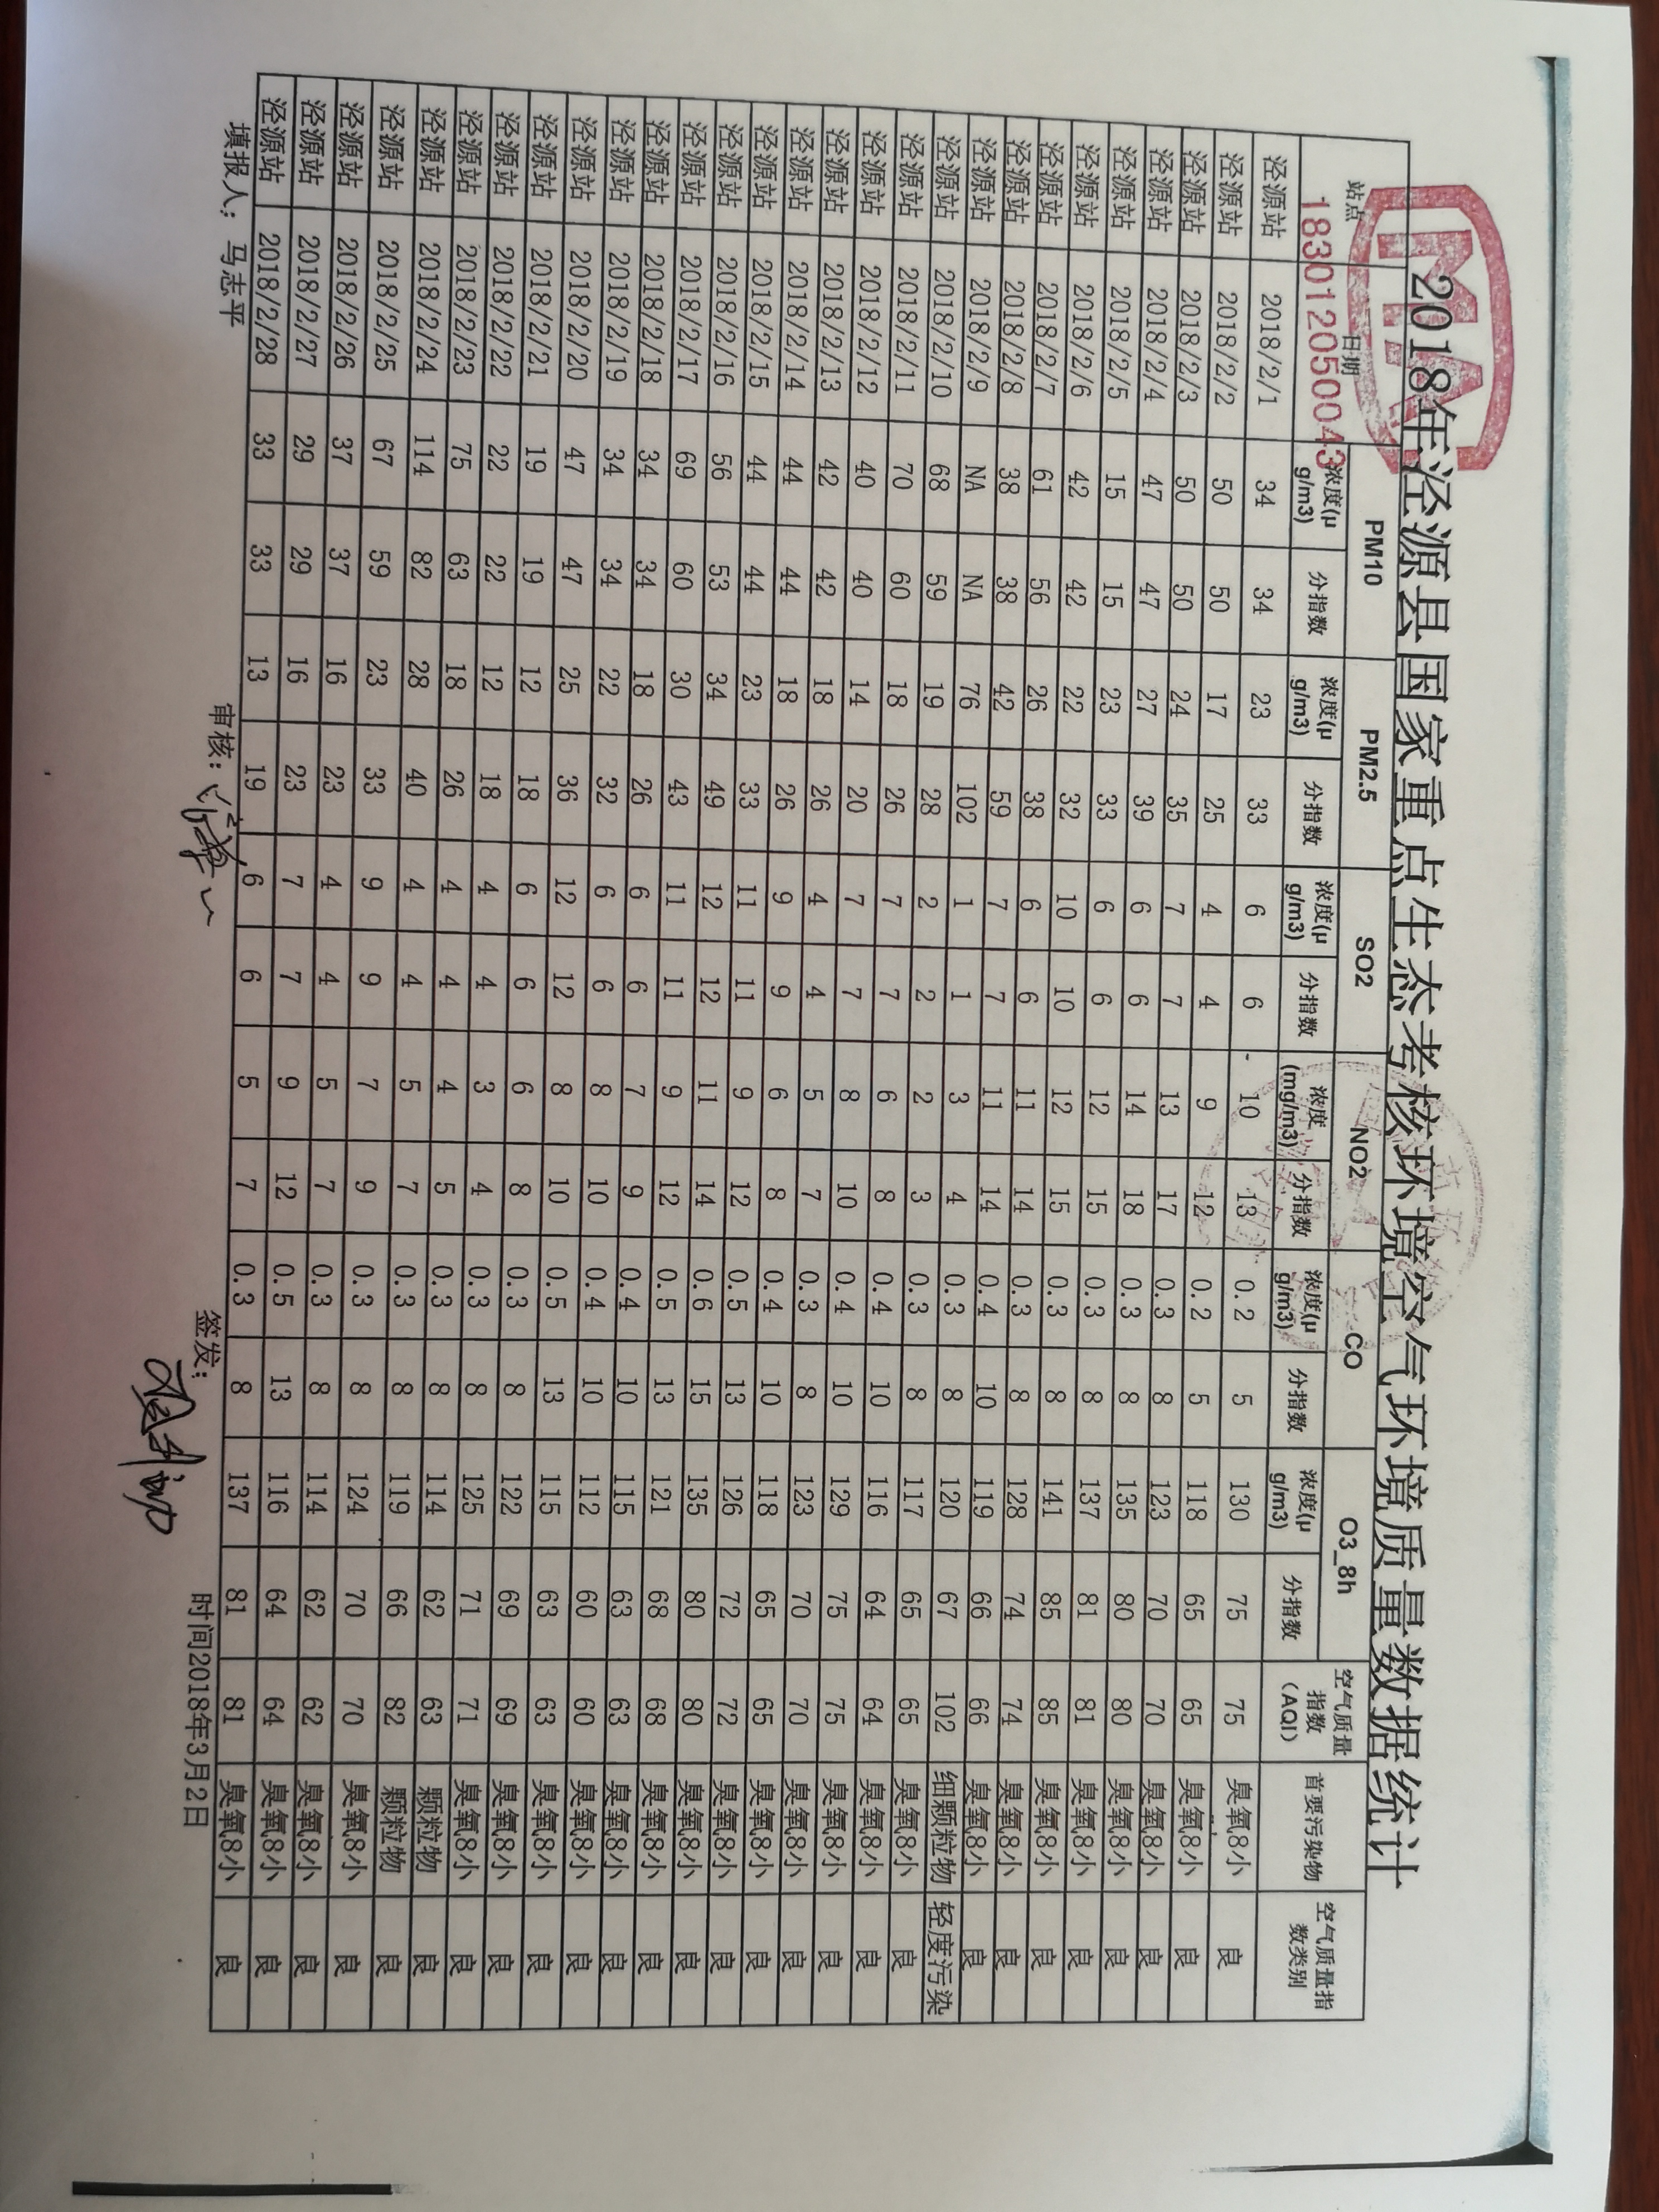 2018年泾源县国家重点生态考核环境空气环境质量数据统计
MA
183012050043
站点 日期 PM10 PM2.5 SO2 NO2 CO O3_8h 空气质量指数（AQI） 首要污染物 空气质量指数类别
浓度(μg/m3) 分指数 浓度(μg/m3) 分指数 浓度(μg/m3) 分指数 浓度(mg/m3) 分指数 浓度(μg/m3) 分指数 浓度(μg/m3) 分指数
泾源站 2018/2/1 34 34 23 33 6 6 10 13 0.2 5 130 75 75 臭氧8小 良
泾源站 2018/2/2 50 50 17 25 4 4 9 12 0.2 5 118 65 65 臭氧8小 良
泾源站 2018/2/3 50 50 24 35 7 7 13 17 0.3 8 123 70 70 臭氧8小 良
泾源站 2018/2/4 47 47 27 39 6 6 14 18 0.3 8 135 80 80 臭氧8小 良
泾源站 2018/2/5 15 15 23 33 6 6 12 15 0.3 8 137 81 81 臭氧8小 良
泾源站 2018/2/6 42 42 22 32 10 10 12 15 0.3 8 141 85 85 臭氧8小 良
泾源站 2018/2/7 61 56 26 38 6 6 11 14 0.3 8 128 74 74 臭氧8小 良
泾源站 2018/2/8 38 38 42 59 7 7 11 14 0.4 10 119 66 66 臭氧8小 良
泾源站 2018/2/9 NA NA 76 102 1 1 3 4 0.3 8 120 67 102 细颗粒物 轻度污染
泾源站 2018/2/10 68 59 19 28 2 2 2 3 0.3 8 117 65 65 臭氧8小 良
泾源站 2018/2/11 70 60 18 26 7 7 6 8 0.4 10 116 64 64 臭氧8小 良
泾源站 2018/2/12 40 40 14 20 7 7 8 10 0.4 10 129 75 75 臭氧8小 良
泾源站 2018/2/13 42 42 18 26 4 4 5 7 0.3 8 123 70 70 臭氧8小 良
泾源站 2018/2/14 44 44 18 26 9 9 6 8 0.4 10 118 65 65 臭氧8小 良
泾源站 2018/2/15 44 44 23 33 11 11 9 12 0.5 13 126 72 72 臭氧8小 良
泾源站 2018/2/16 56 53 34 49 12 12 11 14 0.6 15 135 80 80 臭氧8小 良
泾源站 2018/2/17 69 60 30 43 11 11 9 12 0.5 13 121 68 68 臭氧8小 良
泾源站 2018/2/18 34 34 18 26 6 6 7 9 0.4 10 115 63 63 臭氧8小 良
泾源站 2018/2/19 34 34 22 32 6 6 8 10 0.4 10 112 60 60 臭氧8小 良
泾源站 2018/2/20 47 47 25 36 12 12 8 10 0.5 13 115 63 63 臭氧8小 良
泾源站 2018/2/21 19 19 12 18 6 6 6 8 0.3 8 122 69 69 臭氧8小 良
泾源站 2018/2/22 22 22 12 18 4 4 3 4 0.3 8 125 71 71 臭氧8小 良
泾源站 2018/2/23 75 63 18 26 4 4 4 5 0.3 8 114 62 63 颗粒物 良
泾源站 2018/2/24 114 82 28 40 4 4 5 7 0.3 8 119 66 82 颗粒物 良
泾源站 2018/2/25 67 59 23 33 9 9 7 9 0.3 8 124 70 70 臭氧8小 良
泾源站 2018/2/26 37 37 16 23 4 4 5 7 0.3 8 114 62 62 臭氧8小 良
泾源站 2018/2/27 29 29 16 23 7 7 9 12 0.5 13 116 64 64 臭氧8小 良
泾源站 2018/2/28 33 33 13 19 6 6 5 7 0.3 8 137 81 81 臭氧8小 良
填报人：马志平 审核： 签发： 时间2018年3月2日